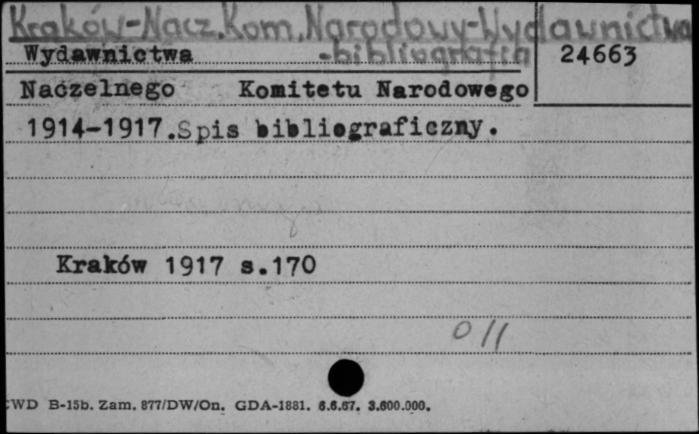 Kraków-Nacz.Kom.Narodowy-Wydawnictwa
-bibliografia
Wydawnictwa
24663
Naczelnego Komitetu Narodowego
1914-1917.Spis bibliograficzny.
Kraków 1917 s.170
011
WD B-15b. Zam. 877/DW/On. GDA-1881. 6.6.67. 3.600.000.